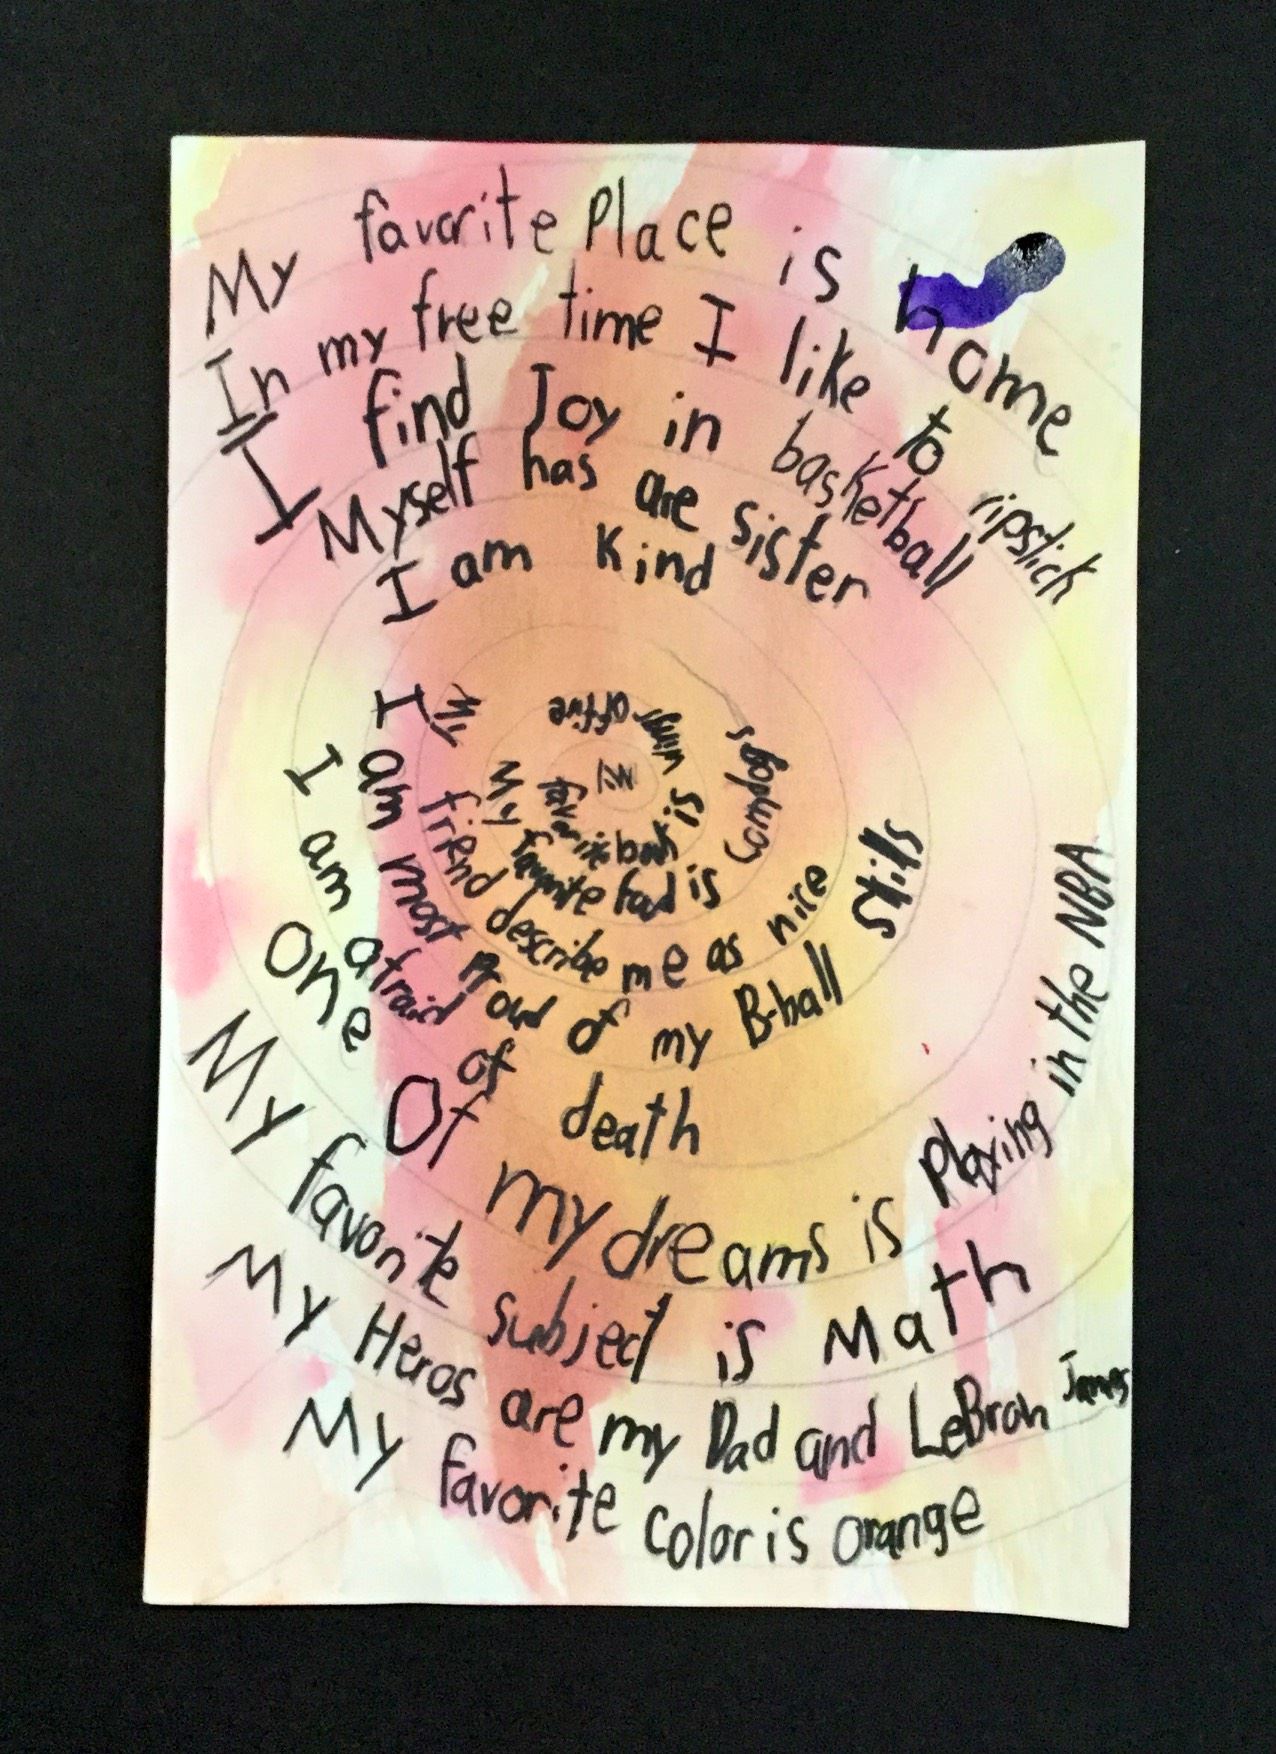 My favorite Place is home
In my free time I like to ripstick
I find Joy in basketball
Myself has are sister
I am kind
My favorite book is wimpy offine
My favorite food is corndogs
My friend describe me as nice
I am most Proud of my B-ball skills
I am afraid of death
One Of my dreams is playing in the NBA
My favorite subject is Math
My Heros are my Dad and LeBron James
My favorite color is orange